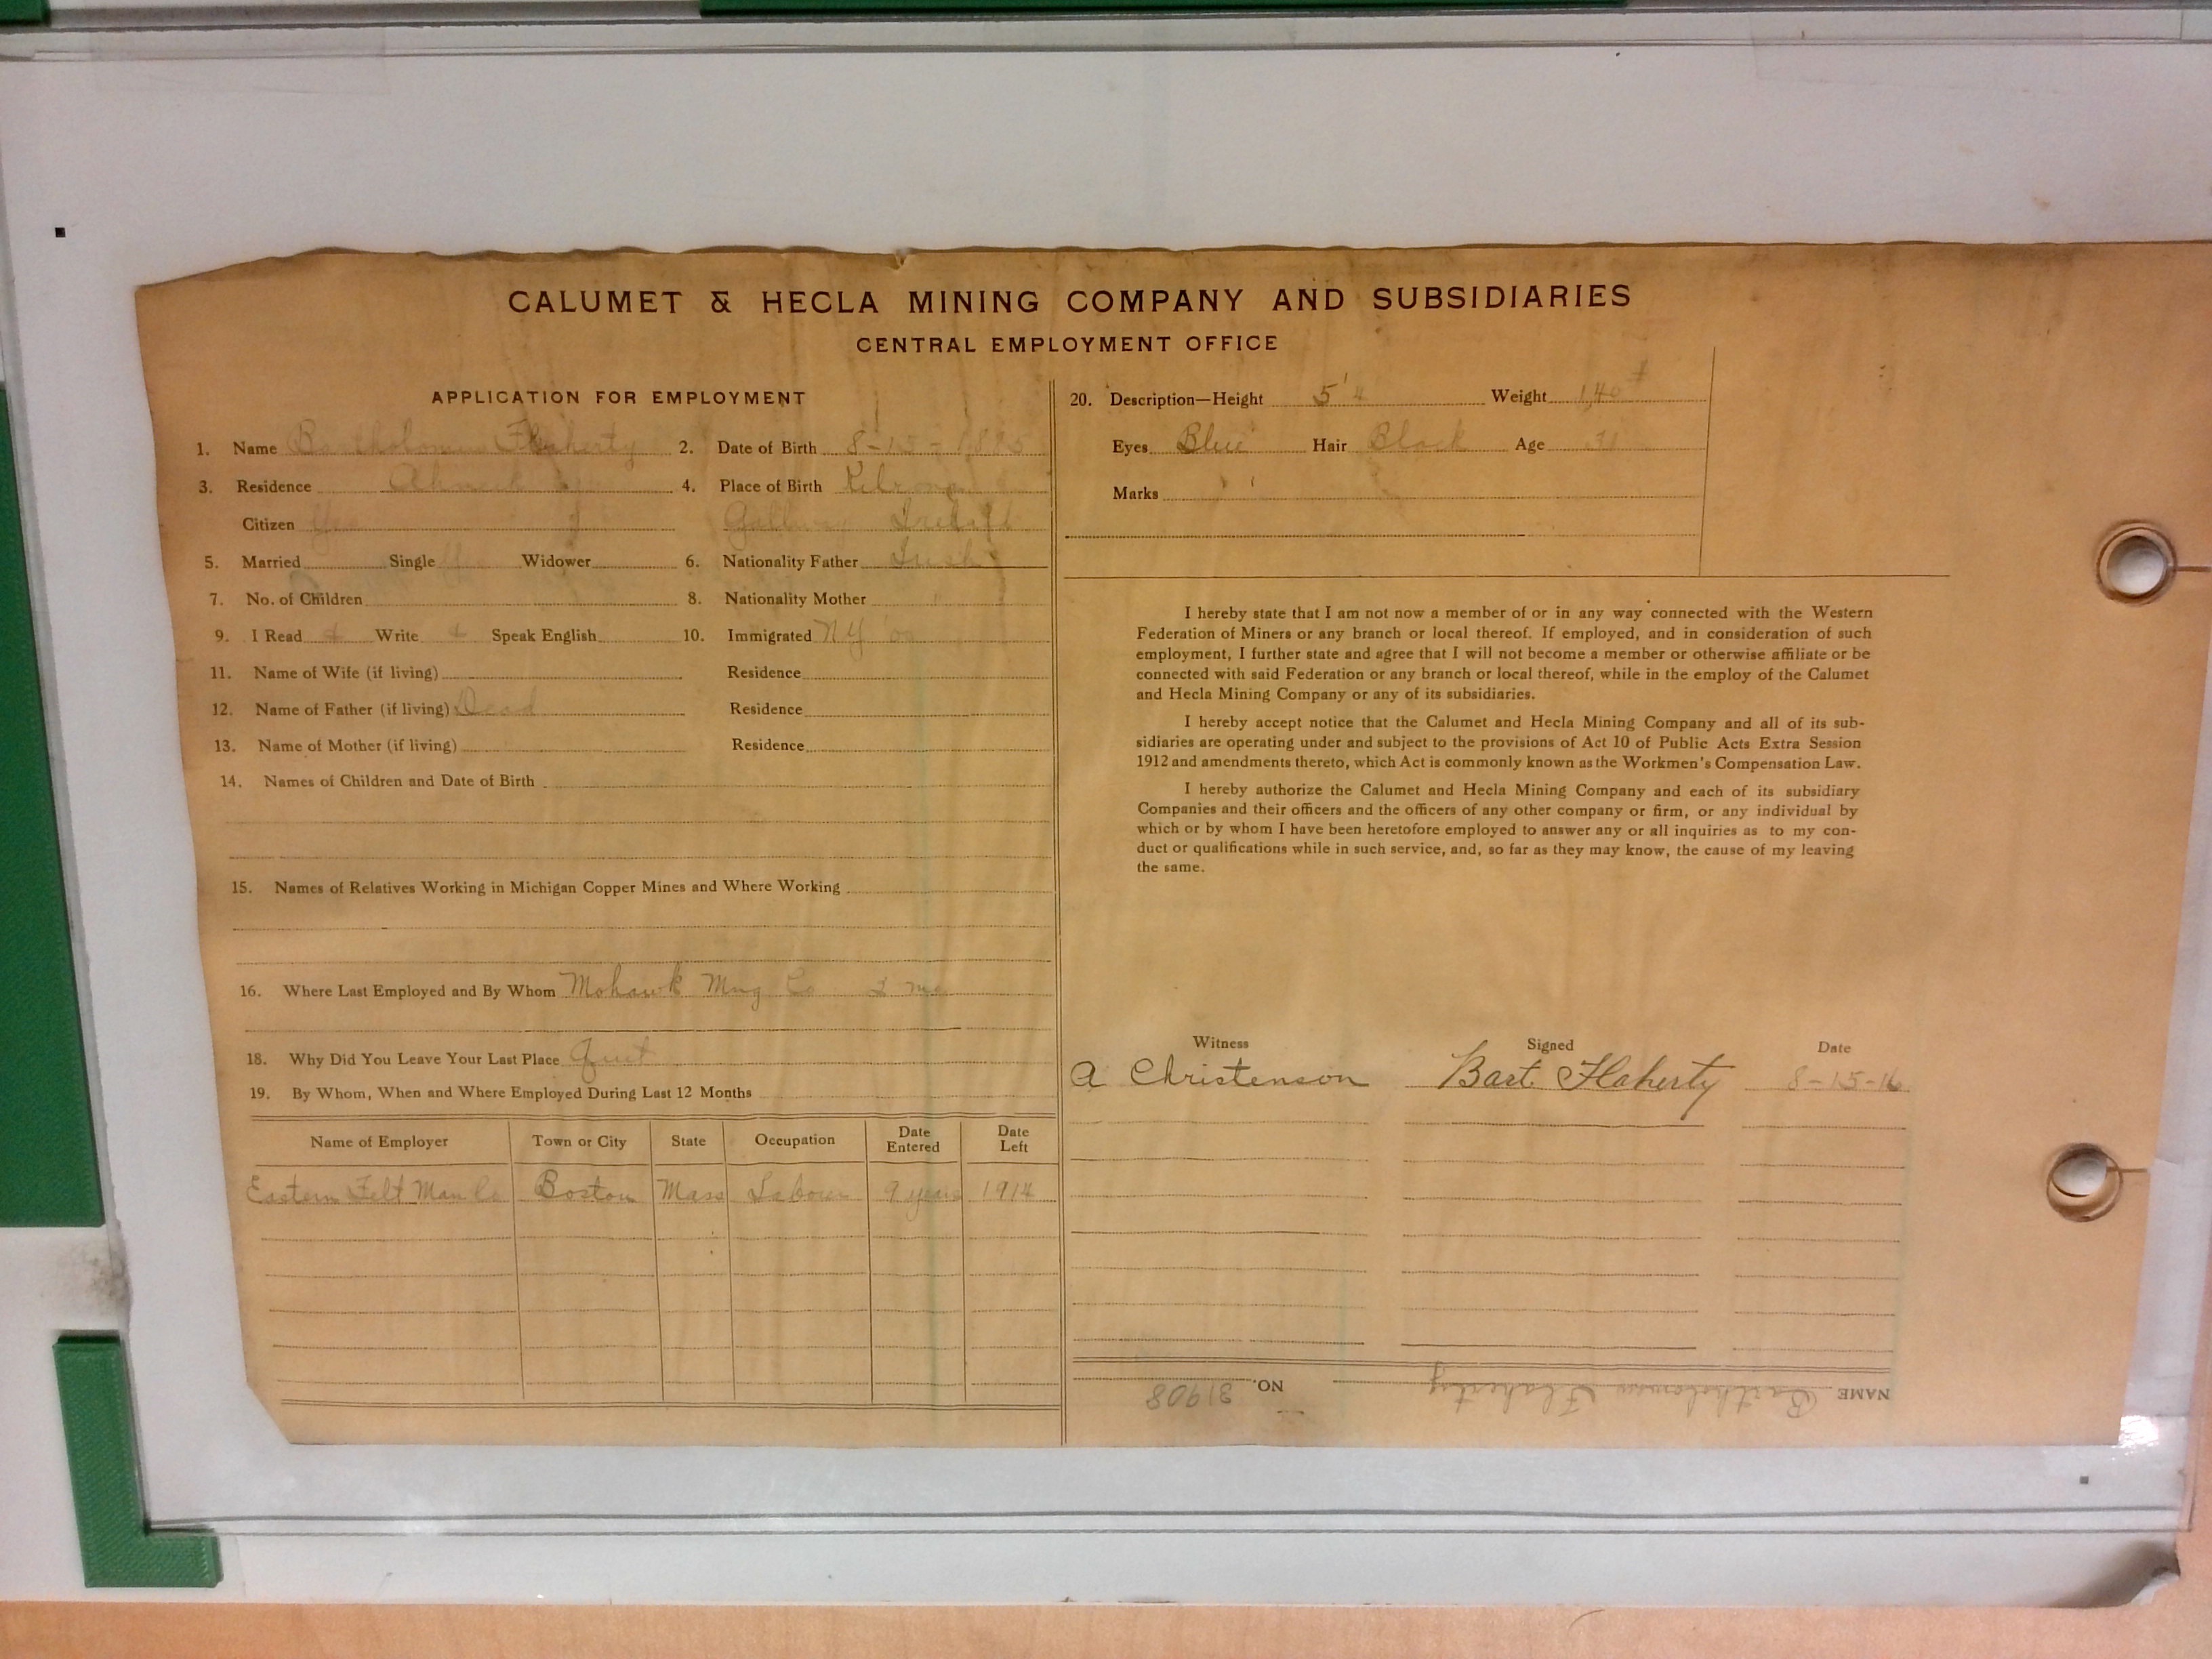 CALUMET & HECLA MINING COMPANY AND SUBSIDIARIES
CENTRAL EMPLOYMENT OFFICE
APPLICATION FOR EMPLOYMENT
1. Name Bartholomew Flaherty 2. Date of Birth 8-15-1885
3. Residence Ahmeek 4. Place of Birth
Citizen Yes Ireland
5. Married Single Yes Widower 6. Nationality Father Irish
7. No. of Children 8. Nationality Mother "
9. I Read Write Speak English 10. Immigrated NY
11. Name of Wife (if living) Residence
12. Name of Father (if living) Dead Residence
13. Name of Mother (if living) Residence
14. Names of Children and Date of Birth
15. Names of Relatives Working in Michigan Copper Mines and Where Working
16. Where Last Employed and By Whom Mohawk Mng Co 2 mo
18. Why Did You Leave Your Last Place Quit
19. By Whom, When and Where Employed During Last 12 Months
Name of Employer Town or City State Occupation Date Entered Date Left
Eastern Felt Man Co Boston Mass Laborer 9 years 1914
20. Description—Height 5' 4 Weight 140#
Eyes Blue Hair Black Age 31
Marks
I hereby state that I am not now a member of or in any way connected with the Western
Federation of Miners or any branch or local thereof. If employed, and in consideration of such
employment, I further state and agree that I will not become a member or otherwise affiliate or be
connected with said Federation or any branch or local thereof, while in the employ of the Calumet
and Hecla Mining Company or any of its subsidiaries.
I hereby accept notice that the Calumet and Hecla Mining Company and all of its sub-
sidiaries are operating under and subject to the provisions of Act 10 of Public Acts Extra Session
1912 and amendments thereto, which Act is commonly known as the Workmen's Compensation Law.
I hereby authorize the Calumet and Hecla Mining Company and each of its subsidiary
Companies and their officers and the officers of any other company or firm, or any individual by
which or by whom I have been heretofore employed to answer any or all inquiries as to my con-
duct or qualifications while in such service, and, so far as they may know, the cause of my leaving
the same.
Witness Signed Date
A Christenson Bart. Flaherty 8-15-16
NAME Bartholomew Flaherty NO. 31908